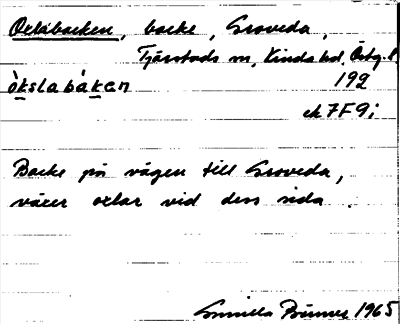 Oxlabacken, backe, Groveda,
Tjärstads sn, Kinda hd, Östg. l.
òkslabàken 192
ek 7F9i
Backe på vägen till Groveda,
växer oxlar vid dess sida.
Gunilla 1965